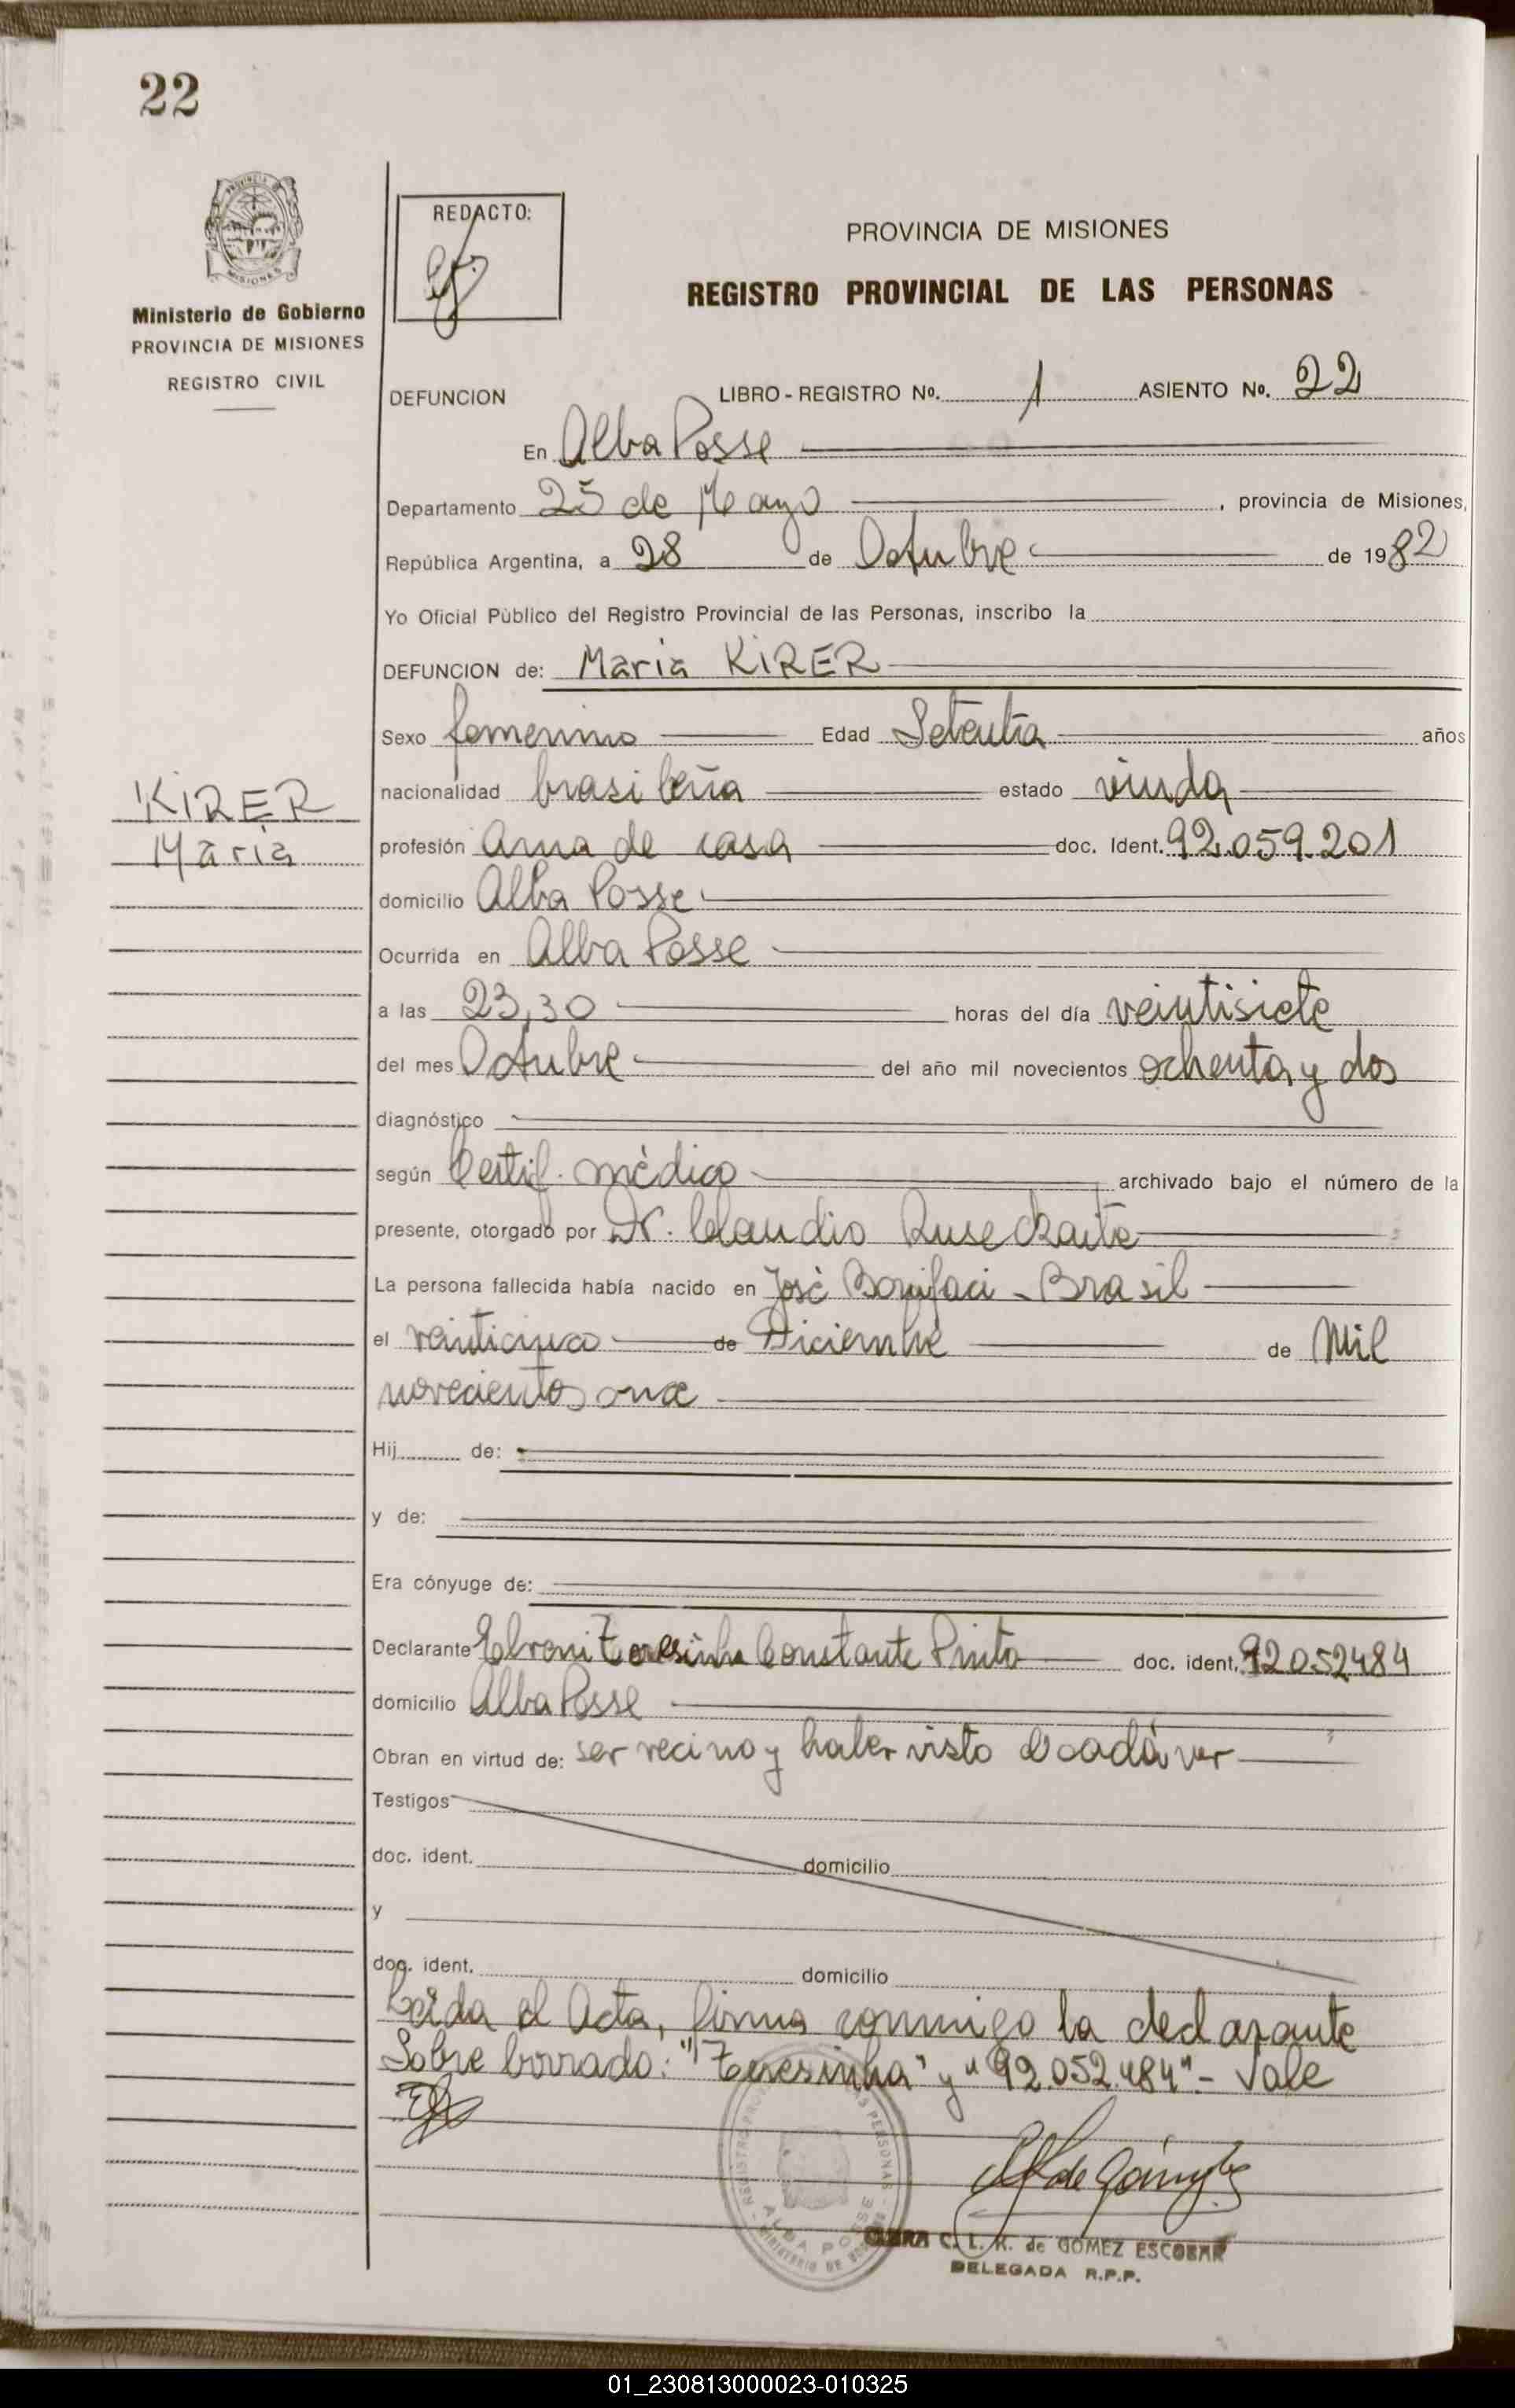 22
PROVINCIA DE
MISIONES
Ministerio de Gobierno
PROVINCIA DE MISIONES
REGISTRO CIVIL
REDACTO:
PROVINCIA DE MISIONES
REGISTRO PROVINCIAL DE LAS PERSONAS
DEFUNCION LIBRO - REGISTRO No. 1 ASIENTO No. 22
En Alba Posse
Departamento 25 de Mayo, provincia de Misiones,
República Argentina, a 28 de Octubre de 1982
Yo Oficial Pùblico del Registro Provincial de las Personas, inscribo la
DEFUNCION de: Maria KIRER
Sexo femenino Edad Setenta años
KIRER
Maria
nacionalidad brasileña estado viuda
profesión Ama de casa doc. Ident. 92.059.201
domicilio Alba Posse
Ocurrida en Alba Posse
a las 23,30 horas del día veintisiete
del mes Octubre del año mil novecientos ochenta y dos
diagnóstico
según Certif. mèdico archivado bajo el número de la
presente, otorgado por Dr. Claudio
La persona fallecida había nacido en Josè Bonifaci - Brasil
el veinticinco de Diciembre de Mil
novecientos once
Hij de:
y de:
Era cónyuge de:
Declarante Teresinha Constante Pinto doc. ident. 92052484
domicilio Alba Posse
Obran en virtud de: ser vecino y haber visto el cadáver
Testigos
doc. ident. domicilio
y
doc. ident. domicilio
Leida el Acta, firma conmigo la declarante
Sobre borrado: "Teresinha" y "92.052.484" - Vale
REGISTRO PROVINCIAL DE LAS PERSONAS
ALBA POSSE
MINISTERIO DE GOBIERNO
C. L. K. de GOMEZ ESCOBAR
DELEGADA R.P.P.
01_230813000023-010325